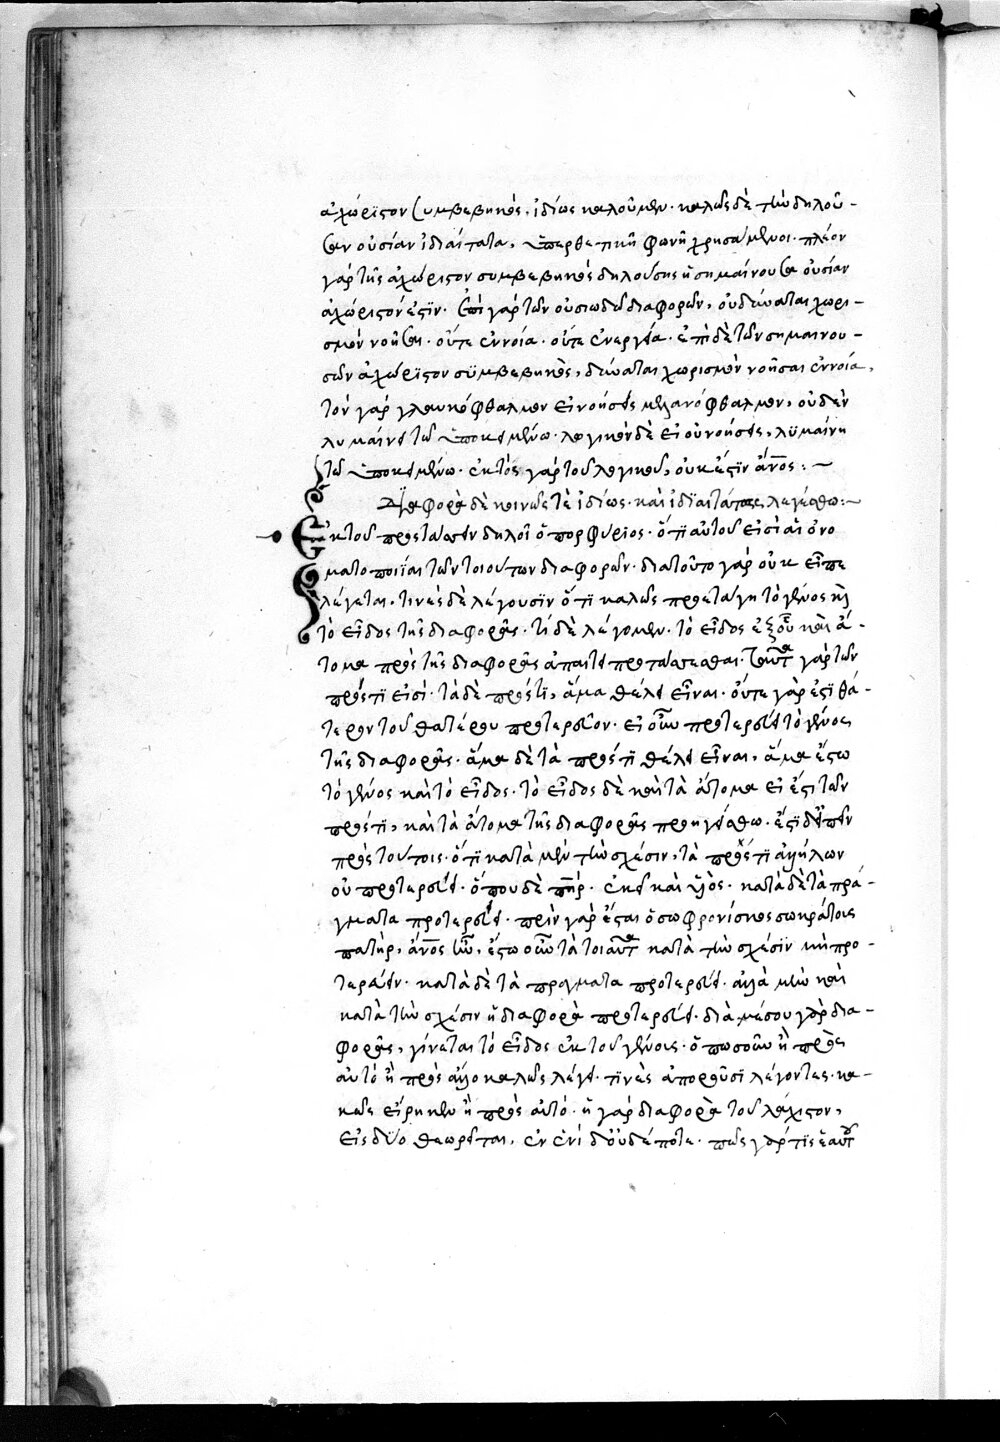 ἀχώριστον συμβεβηκὸς, ἰδίως καλοῦμεν. καλῶς δὲ τὴν δηλοῦ-
σαν οὐσίαν ἰδιαίτατα, ὑπερθετικῇ φωνῇ χρησάμενοι. πλέον
γὰρ τῆς ἀχώριστον συμβεβηκὸς δηλούσης ἡ σημαίνουσα οὐσίαν
ἀχώριστός ἐστιν. ἐπὶ γὰρ τῶν οὐσιωδῶν διαφορῶν, οὐ δύναται χωρι-
σμὸν νοῆσαι. οὔτε ἐννοία. οὔτε ἐνεργεία. ἐπὶ δὲ τῶν σημαινου-
σῶν ἀχώριστον συμβεβηκὸς, δύναται χωρισμὸν νοῆσαι ἐννοία,
τὸν γὰρ γλαυκόφθαλμον εἰ νοήσεις μελανόφθαλμον, οὐδὲν
λυμαίνει τῶ ὑποκειμένω. λογικὸν δὲ εἰ οὐ νοήσεις, λυμαίνη
τῶ ὑποκειμένω. ἐκτὸς γὰρ τοῦ λογικοῦ, οὐκ ἔστιν ἄνος:~
Διαφορὰ δὲ κοινῶς τὲ ἰδίως. καὶ ἰδιαίτατα λεγέσθω:~
Ἐκ τοῦ προστάσσειν δηλοῖ ὁ πορφύριος. ὅτι αὐτοῦ εἰσὶ αἱ ὀνο
ματοποιΐαι τῶν τοιούτων διαφορῶν. διατοῦτο γὰρ οὐκ εἶπε
λέγεται. τινὲς δὲ λέγουσιν ὅτι καλῶς προετάγη τὸ γένος καὶ
τὸ εἶδος τῆς διαφορᾶς. τί δὲ λέγομεν. τὸ εἶδος ἐξ οὗ καὶ ἄ-
τομα πρὸς τῆς διαφορᾶς ἀπαιτεῖ προτάσσεσθαι. ταῦτα γὰρ τῶν
πρός τι εἰσί. τὰ δὲ πρός τι, ἅμα θέλει εἶναι. οὔτε γάρ ἐστι θά-
τερον τοῦ θατέρου πρότερον. εἰ οὖν προτερεύει τὸ γένος
τῆς διαφορᾶς. ἅμα δὲ τὰ πρός τι θέλει εἶναι, ἅμα ἔστω
τὸ γένος καὶ τὸ εἶδος. τὸ εἶδος δὲ καὶ τὰ ἄτομα εἰ ἔστι τῶν
πρός τι, καὶ τὰ ἄτομα τῆς διαφορᾶς προηγείσθω. ἔστι δὲ εἰπεῖν
πρὸς τούτοις. ὅτι κατὰ μὲν τὴν σχέσιν, τὰ πρός τι ἀλλήλων
οὐ προτερεύει. ὅπου δὲ πηρ. ἐκεῖ καὶ υἱὸς. κατὰ δὲ τὰ πρά-
γματα προτερεύει. πρὶν γὰρ ἔσται ὁ σωφρονίσκος σωκράτους
πατὴρ, ἄνος ἦν, ἔστω οὖν τὰ τοιαῦτα κατὰ τὴν σχέσιν μὴ προ-
τερεύειν. κατὰ δὲ τὰ πράγματα προτερεύει. ἀλλὰ μὴν καὶ
κατὰ τὴν σχέσιν ἡ διαφορὰ προτερεύει. διὰ μέσου γὰρ δια-
φορᾶς, γίνεται τὸ εἶδος ἐκ τοῦ γένους. ὁπωσοῦν ἢ πρὸς
αὐτὸ ἢ πρὸς ἄλλο καλῶς λέγει. τινὲς ἀποροῦσι λέγοντες. κα-
κῶς εἴρηκεν ἢ πρὸς αὐτό. ἡ γὰρ διαφορὰ τοὐλάχιστον,
εἰς δύο θεωρεῖται, ἐν ἑνὶ δ' οὐδέποτε. πῶς γάρ τις ἑαυτοῦ